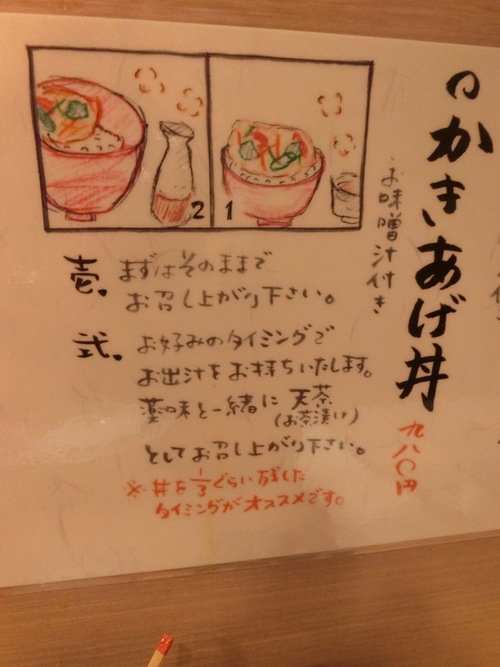 のかきあげ丼
お味噌汁付き
九八〇円
1
2
壱. まずはそのままで
お召し上がり下さい。
弐. お好みのタイミングで
お出汁をお持ちいたします。
薬味と一緒に天茶
(お茶漬け)
としてお召し上がり下さい。
※丼を1/3ぐらい残した
タイミングがオススメです。